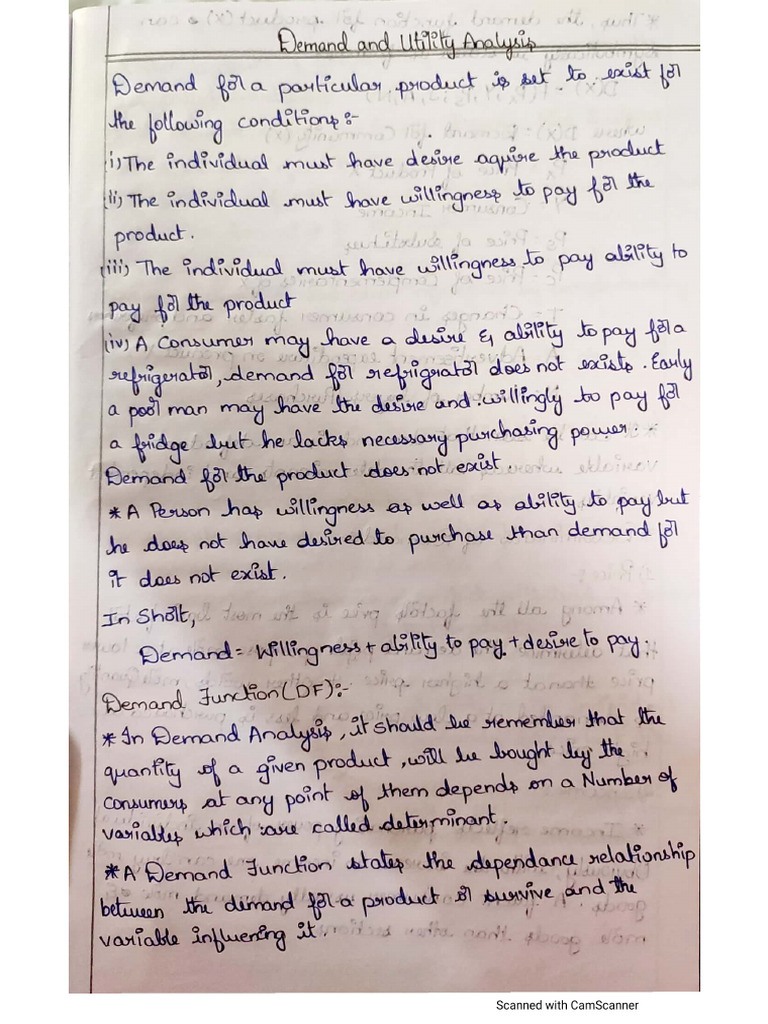 Demand and Utility Analysis
Demand for a particular product is set to exist for
the following conditions:-
i) The individual must have desire aquire the product
(ii) The individual must have willingness to pay for the
product.
(iii) The individual must have willingness to pay ability to
pay for the product
(iv) A Consumer may have a desire & ability to pay for a
refrigerator, demand for refrigrator does not exists. Early
a poor man may have the desire and willingly to pay for
a fridge but he lacks necessary purchasing power.
Demand for the product does not exist.
* A Person has willingness as well as ability to pay but
he does not have desired to purchase than demand for
it does not exist.
In Short,
Demand = Willingness + ability to pay + desire to pay.
Demand Function (DF):-
* In Demand Analysis, it should be remember that the
quantity of a given product, will be bought by the
consumers at any point of them depends on a Number of
variables which are called determinant.
* A Demand Function states the dependance relationship
between the demand for a product or survive and the
variable influening it.
Scanned with CamScanner